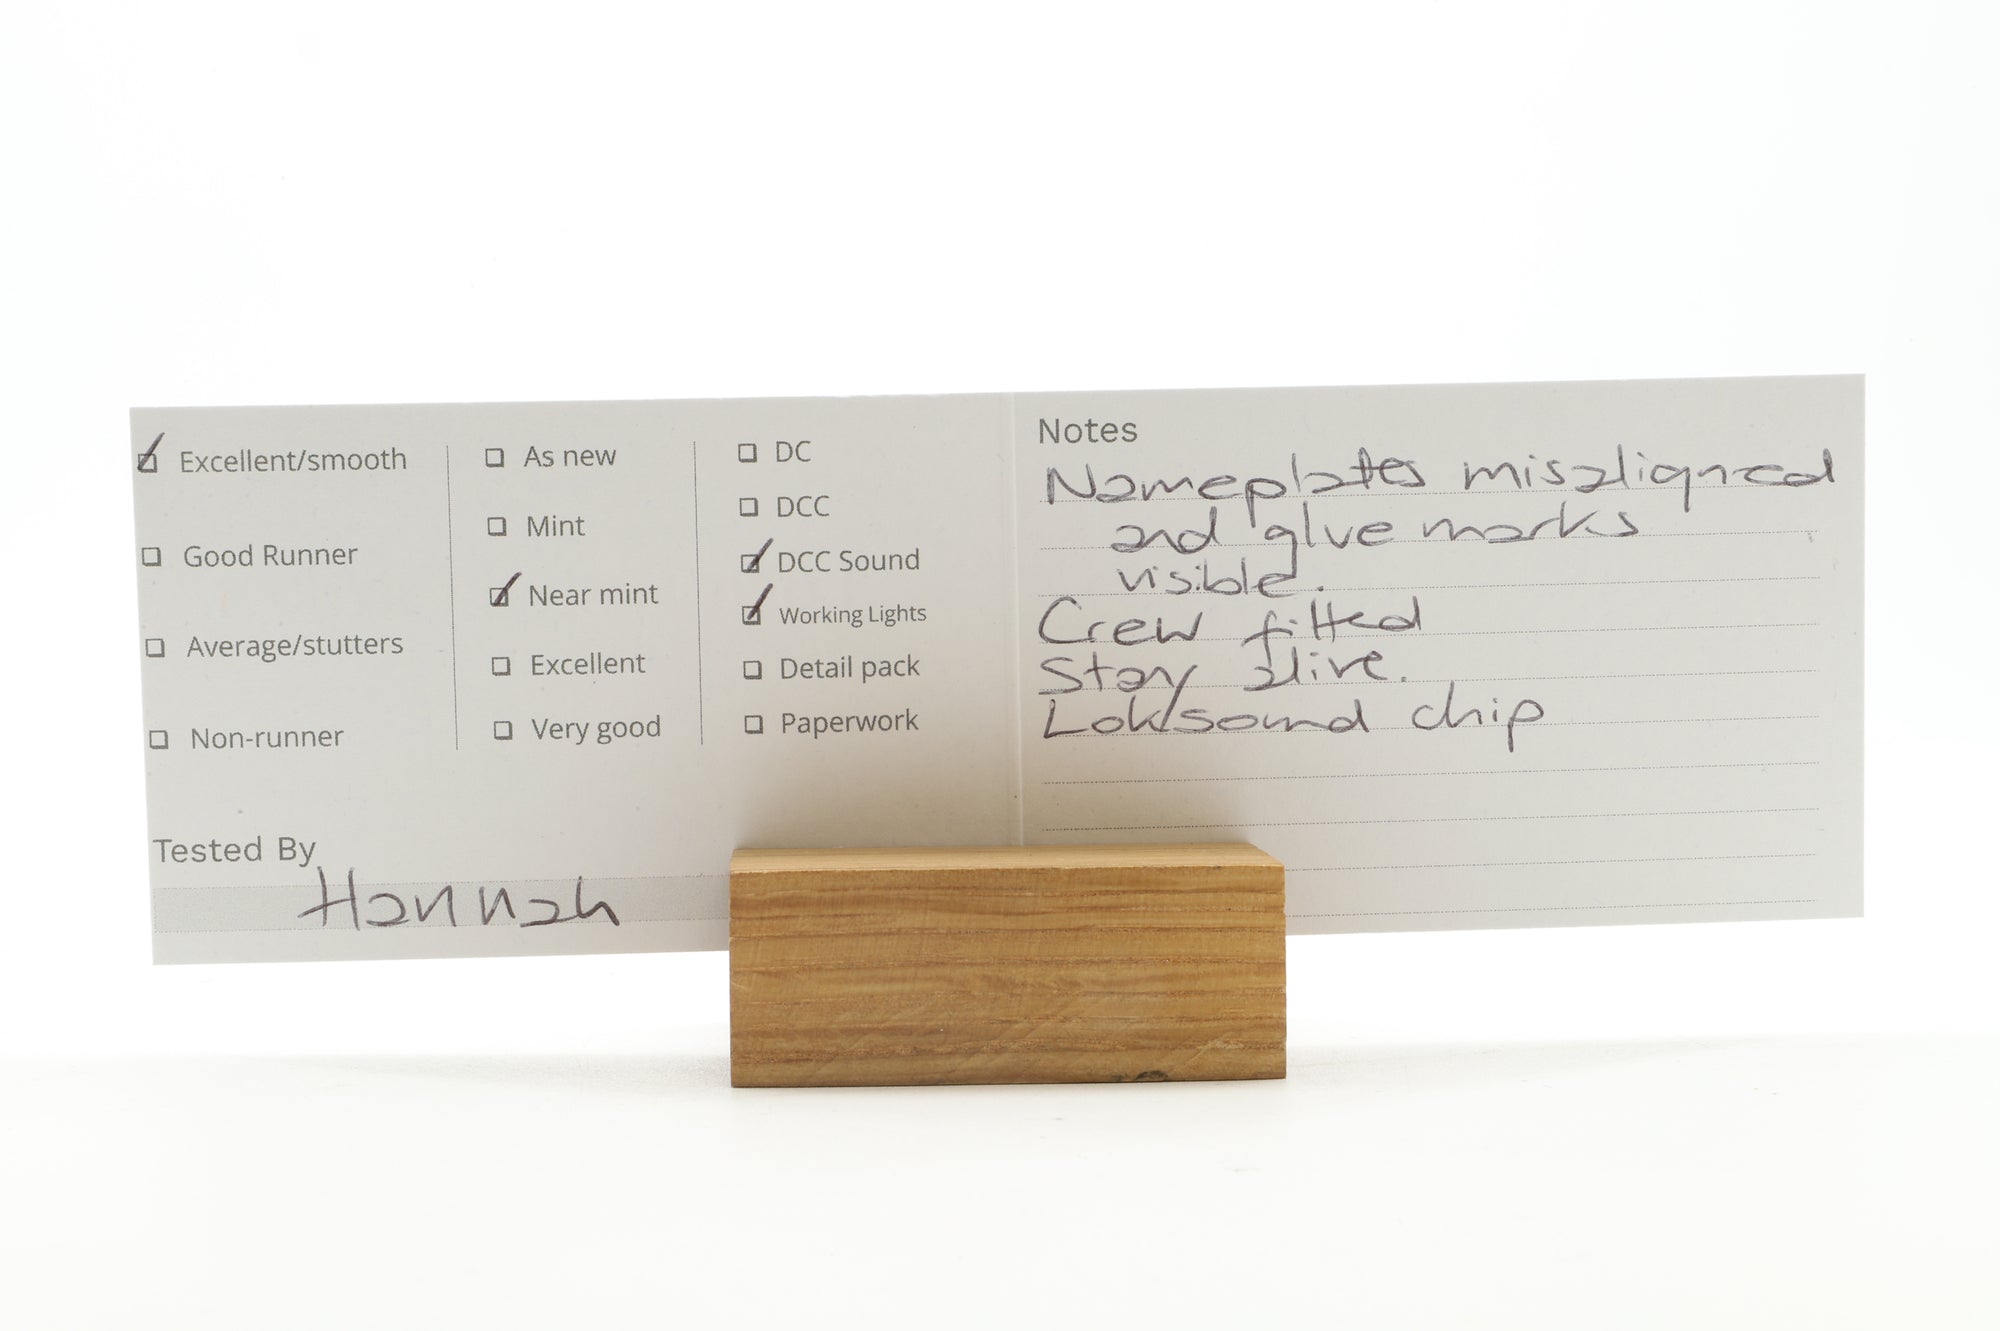 Excellent/smooth
Good Runner
Average/stutters
Non-runner
As new
Mint
Near mint
Excellent
Very good
DC
DCC
DCC Sound
Working Lights
Detail pack
Paperwork
Tested By
Hannah
Notes
Nameplates misaligned
and glue marks
visible.
Crew fitted
Stay alive.
Loksound chip